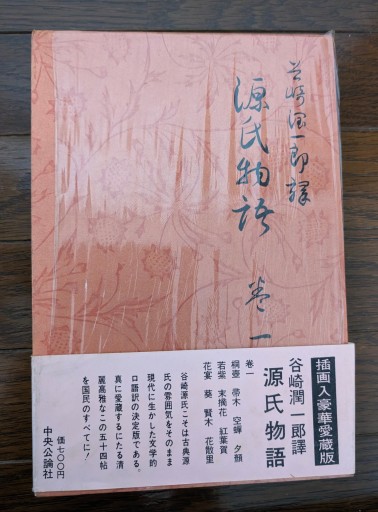 谷崎潤一郎譯
源氏物語 巻一
插画入豪華愛蔵版
谷崎潤一郎譯
源氏物語
巻一
桐壺 帚木 空蟬 夕顔
若紫 末摘花 紅葉賀
花宴 葵 賢木 花散里
谷崎源氏こそは古典源
氏の雰囲気をそのまま
現代に生かした文学的
口語訳の決定版である。
真に愛蔵するにたる清
麗高雅なこの五十四帖
を国民のすべてに!
中央公論社
価七〇〇円